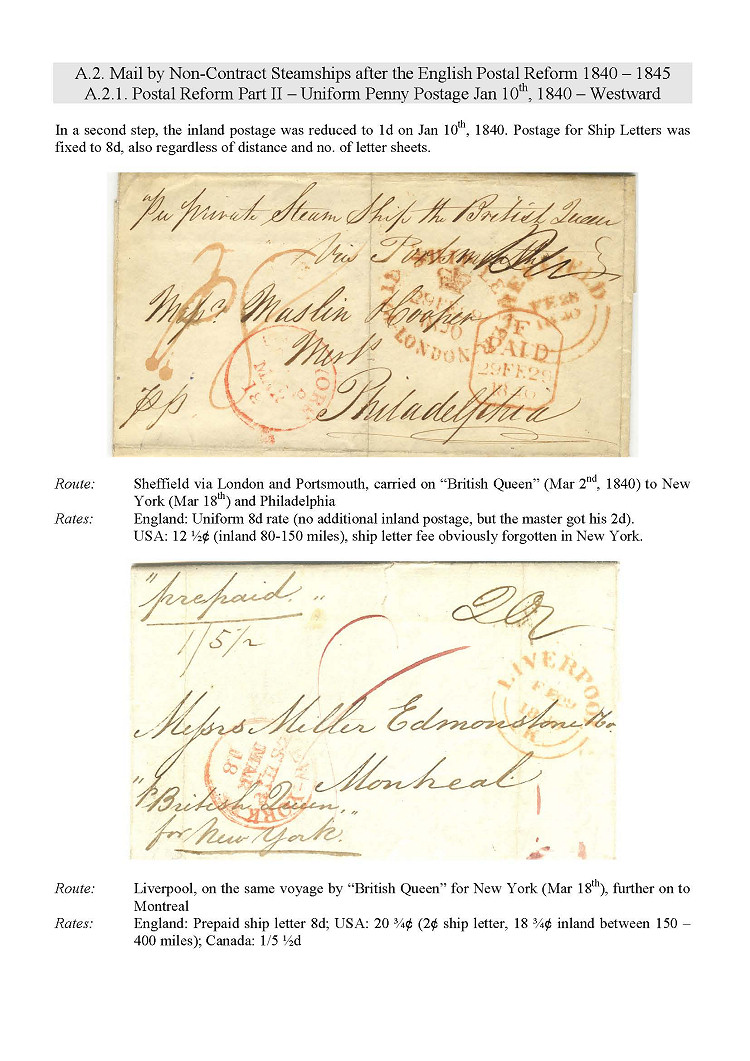 A.2. Mail by Non-Contract Steamships after the English Postal Reform 1840 – 1845
A.2.1. Postal Reform Part II – Uniform Penny Postage Jan 10th, 1840 – Westward
In a second step, the inland postage was reduced to 1d on Jan 10th, 1840. Postage for Ship Letters was
fixed to 8d, also regardless of distance and no. of letter sheets.
"Per private Steam Ship the British Queen
Via Portsmouth
Messrs Maslin Hooper
Merts
pp Philadelphia
LONDON
PAID
29 FE 29
1840
FE 28
1840
Route: Sheffield via London and Portsmouth, carried on “British Queen” (Mar 2nd, 1840) to New
York (Mar 18th) and Philadelphia
Rates: England: Uniform 8d rate (no additional inland postage, but the master got his 2d).
USA: 12 ½¢ (inland 80-150 miles), ship letter fee obviously forgotten in New York.
"prepaid."
1/5½
LIVERPOOL
Messrs Miller Edmonstone & Co.
Montreal
NEW-YORK
SHIP
MAR
18
"British Queen,"
for New York.
Route: Liverpool, on the same voyage by “British Queen” for New York (Mar 18th), further on to
Montreal
Rates: England: Prepaid ship letter 8d; USA: 20 ¾¢ (2¢ ship letter, 18 ¾¢ inland between 150 –
400 miles); Canada: 1/5 ½d